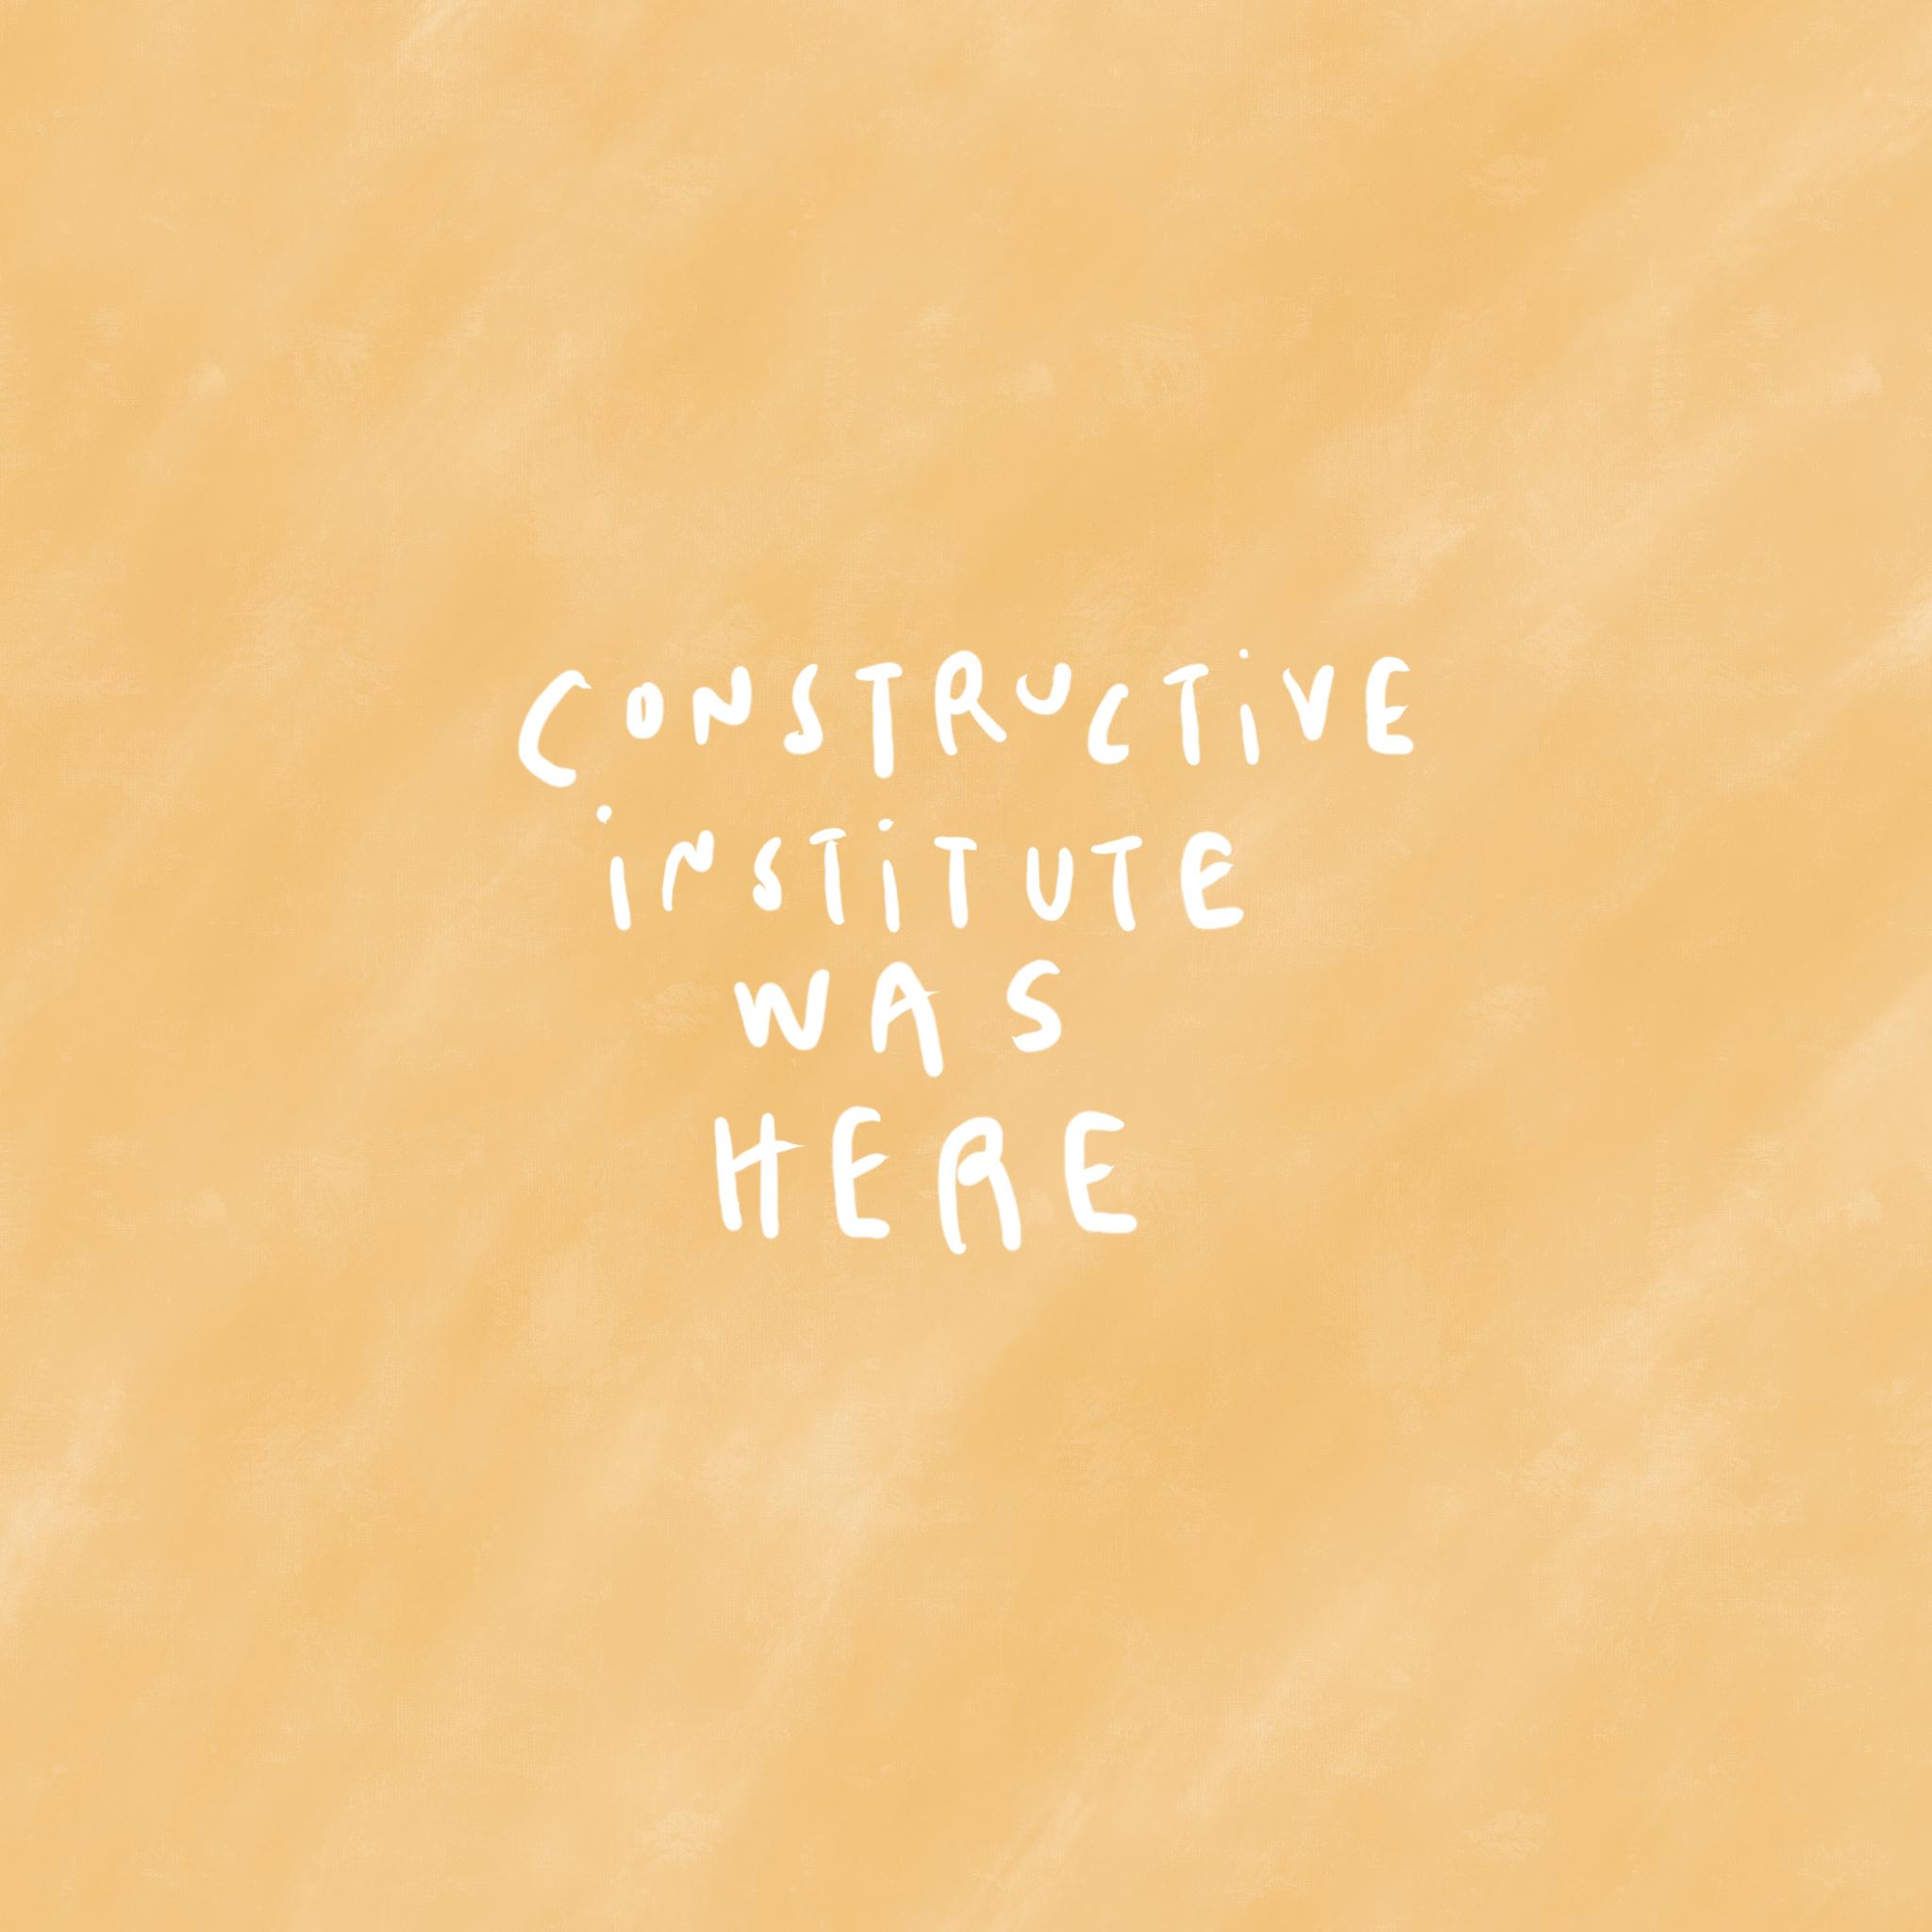 CONSTRUCTiVE
iNSTiTUTE
WAS
HERE